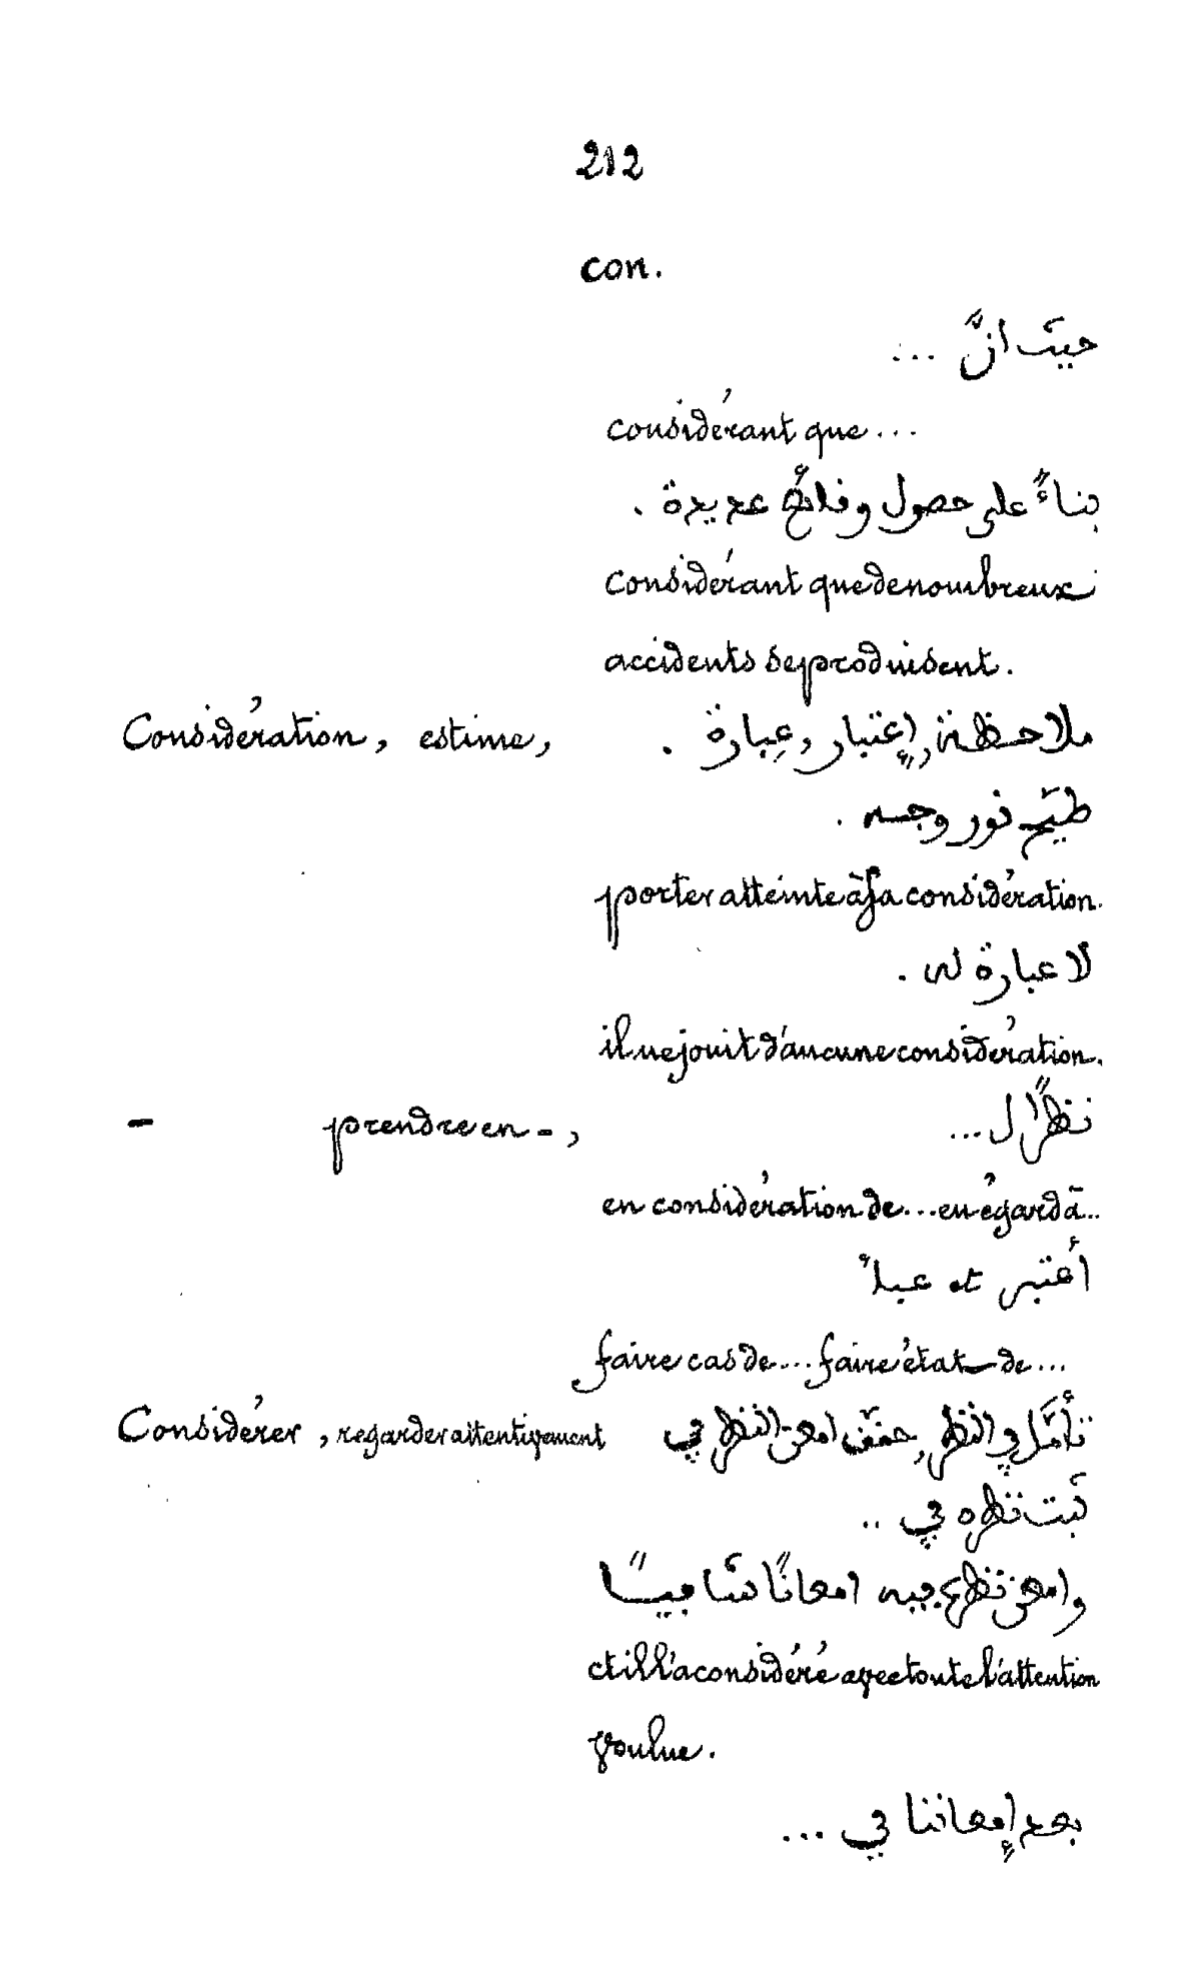 212
con.
حيث انّ ...
considérant que ...
بناءً على حصول وقائع عديدة .
considérant que de nombreux
accidents se produisent.
Considération, estime, ملاحظة, إعتبار, عِبارة .
نور وجهه .
porter atteinte à sa considération.
لا عبارة له .
il ne jouit d'aucune considération.
- prendre en -, نظرًا ل ...
en considération de ... eu égard à ...
أعتبر et عبأ
faire cas de ... faire état de ...
Considérer, regarder attentivement تأمّل في, انظر, حقّق, امعن النظر في
ثبت نظره في ..
وامعن نظره فيه امعانًا شافيًا
et il l'a considéré avec toute l'attention
voulue.
بعد إمعاننا في ...